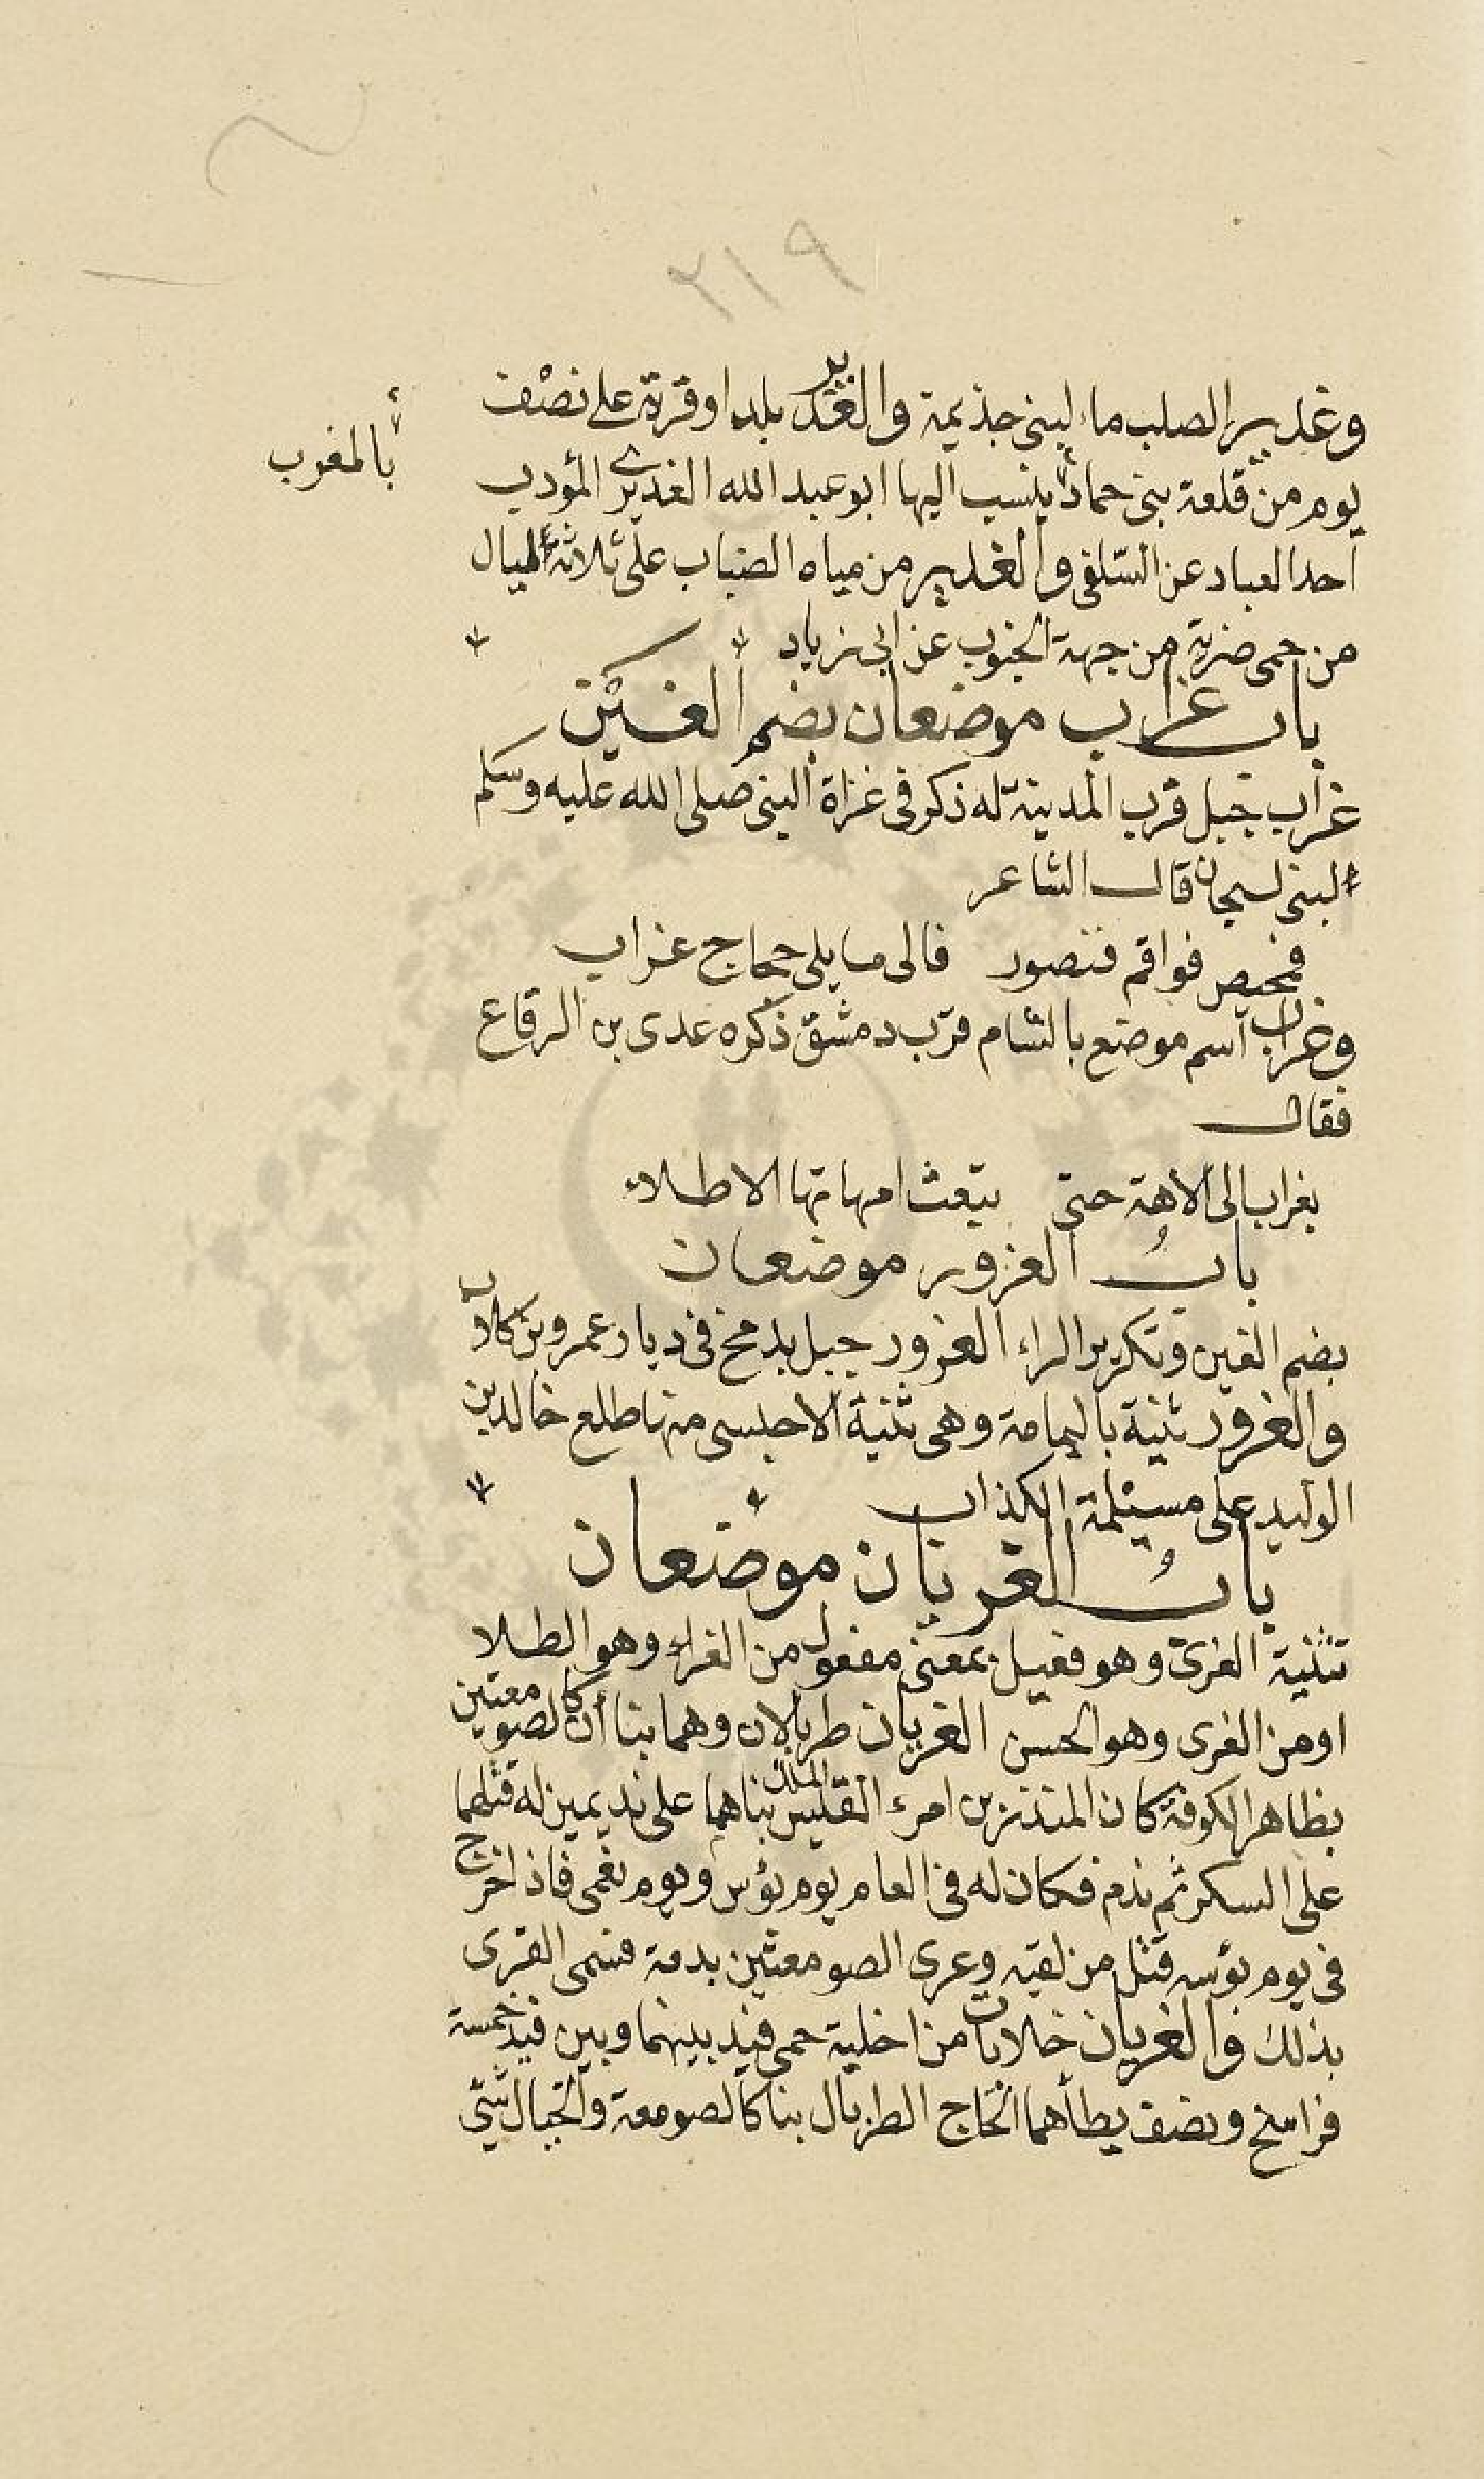 ٢١٩
وغدير الصلب ماء لبنى جذيمة والغدير بلد اوقرية على نصف
يوم من قلعة بنى حماد ينسب اليها ابو عبد الله الغديرى المؤدب
بالمغرب
احد العباد عن السلفى والغدير من مياه الضباب على ثلاثة اميال
من حمى ضرية من جهة الجنوب عن ابى زياد
باب غراب موضعان بضم الغين
غراب جبل قرب المدينة له ذكر فى غزاة النبى صلى الله عليه وسلم
لبنى لحيان قال الشاعر
فمخيص فواقم فصور فالى ما يلى حجاج غراب
وغراب اسم موضع بالشام قرب دمشق ذكره عدى بن الرقاع
فقال
بغراب الى الاهة حتى يتعث امهاتها الاطلاء
باب الغرور موضعان
بضم الغين وتكرير الراء الغرور جبل بدمخ فى ديار عمرو بن كلاب
والغرور ثنية باليمامة وهى ثنية الاحيسى منها طلع خالد بن
الوليد على مسيلمة الكذاب
باب الغريان موضعان
تثنية الغرى وهو فعيل بمعنى مفعول من الغراء وهو الطلا
او من الغرى وهو الحسن الغريان طربالان وهما بناان كالصومعتين
بظاهر الكوفة كان المنذر بن امرء القيس الملك بناهما على نديمين له قتلهما
على السكر ثم ندم فكان له فى العام يوم بؤس ويوم نعمى فاذا خرج
فى يوم بؤسه قتل من لقيه وغرى الصومعتين بدمه فسمى الغرى
بذلك والغريان خلاات من اخلية حمى فيد بينهما وبين فيد خمسة
فراسخ ونصف يطأهما الحاج الطربال بنا كالصومعة والجبال شئ